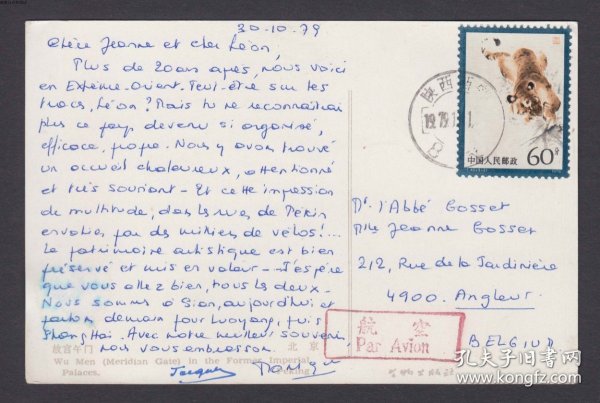 30-10-79
Chère Jeanne et cher Léon,
Plus de 20 ans après, nous voici
en Extême-Orient. Peut-être sur tes
traces, Léon? Mais tu ne reconnaîtrais
plus ce pays devenu si organisé,
efficace, propre. Nous y avons trouvé
un accueil chaleureux, attentionné
et très souriant - Et cette impression
de multitude, dans les rues de Pékin
envahies par des milliers de vélos!...
Le patrimoine artistique est bien
préservé et mis en valeur - J'espère
que vous allez bien, tous les deux -
Nous sommes à Sian, aujourd'hui et
partons demain pour Luoyang, puis
Shanghai. Avec notre meilleur souvenir,
nous vous embrassons.
Jacques
故宫午门
北京
Wu Men (Meridian Gate) in the Former Imperial
Palaces, Peking
中国人民邮政 60分
陕西西
B
Mr. l'Abbé Gosset
Mlle Jeanne Gosset
212, Rue de la Jardinière
4900. Angleur
BELGIUM
航空
Par Avion
孔夫子旧书网
www.kongfz.com